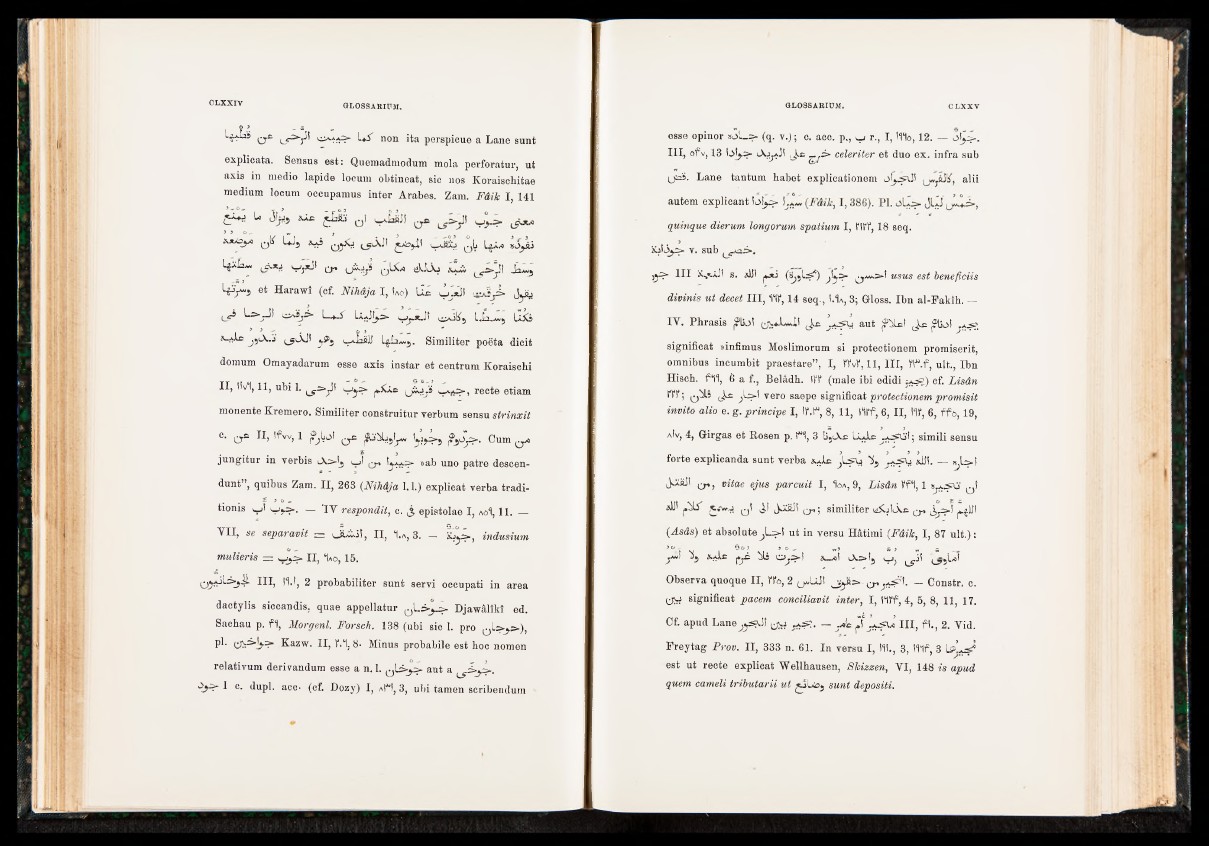 CLXXIV GLOSSARIUM.
كما جيبت الرحى عن قطبها non ita perspicue a Lane sunt
explicata. Sensus est: Quemadmodum mola perforatur, ut
axis in medio lapide locum obtineat, sic nos Koraischitae
medium locum occupamus inter Arabes. Zam. Fâik I, 141
معنى جوب الرحى عن القطب ان تقطع عنه ويزال ما يمنع
نفوذه منها بأن يثقب الموضع الذى يكون فيه ولما كان موضعه
وسط الرحى شبه بذلك مكان قريش من العرب يعنى سطتها
وسرتها et Harawî (cf. Nihâja I, ١٨٥) يقول خرقت العرب عنا
فكنا وسطا وكانت العرب حوالينا كما خرقت الرحى فى
وسطها للقطب وهو الذى تدور عليه. Similiter poëta dicit
domum Omayadarum esse axis instar et centrum Koraischi
II, ١١٧٩, 11, ubi l. جيبت قريش عنكم جوب الرحى, recte etiam
monente Kremero. Similiter construitur verbum sensu strinxit
c. عن II, ١٤٧٧, 1 جردوكم وجوبوا سراويلاتكم عن ادباركم. Cum من
jungitur in verbis جيبوا من أب واحد »ab uno patre descen-
dunt”, quibus Zam. II, 263 (Nihâja l. l.) explicat verba tradi-
tionis جوب أب. — IV respondit, c. فى epistolae I, ٨٥٩, 11. —
VII, se separavit = انشق, II, ٦.٨, 3. — جوبة, indusium
mulieris = جوب II, ٦٨٥, 15.
جوخانيون III, ١٩.١, 2 probabiliter sunt servi occupati in area
dactylis siccandis, quae appellatur جوخان Djawâlîkî ed.
Sachau p. ٤٩, Morgenl. Forsch. 138 (ubi sic l. pro جوجان),
pl. جواخين Kazw. II, ٢.٩, 8. Minus probabile est hoc nomen
relativum derivandum esse a n. l. جوخان aut a جوخى.
جود I c. dupl. acc. (cf. Dozy) I, ٨٣٩, 3, ubi tamen scribendum
GLOSSARIUM. CLXXV
esse opinor جاده (q. v.); c. acc. p., ب r., I, ١٩٦٥, 12. — جواد.
III, ٥٤٧, 13 خرج على البريد جوادا celeriter et duo ex. infra sub
فض. Lane tantum habet explicationem كالفرس الجواد, alii
autem explicant سيرا جوادا (Fâik, I, 386). Pl. خمس ليال جياد,
quinque dierum longorum spatium I, ٢١٢٢, 18 seq.
جوذابة v. sub خصى.
جور III الصنيعة s. نعم الله (مجاورة) احسن جوار usus est beneficiis
divinis ut decet III, ٦٩٢, 14 seq., ١.٦٨, 3; Gloss. Ibn al-Fakîh. —
IV. Phrasis يجير على المسلمين ادناهم aut يجير على اعلاهم ادناهم
significat »infimus Moslimorum si protectionem promiserit,
omnibus incumbit praestare”, I, ٢٢٧٢, 11, III, ٢٣.٤, ult., Ibn
Hisch. ٤٦٩, 6 a f., Belâdh. ١٢٢ (male ibi edidi يجيز) cf. Lisân
٢٢٢; اجار على فلان vero saepe significat protectionem promisit
invito alio e. g. principe I, ١٢.٣, 8, 11, ١٩٢٤, 6, II, ١٩٢, 6, ٤٤٥, 19,
٨١٧, 4, Girgas et Rosen p. ٣٩, 3 اتجير علينا عدونا; simili sensu
forte explicanda sunt verba الله يجير ولا يجار عليه. — اجاره
من القتل, vitae ejus parcuit I, ٦٥٨, 9, Lisân ٢٤٩, 1 ان تجيره
من القتل الى ان يسمع كلام الله; similiter اللهم أجرنى من عذابك
(Asâs) et absolute اجار ut in versu Hâtimi (Fâik, I, 87 ult.):
أماوى انى رب واحد أمه اجرت فلا غرم عليه ولا أسر
Observa quoque II, ٢٢٥, 2 اجير من حقوق الناس. — Constr. c.
بين significat pacem conciliavit inter, I, ١٩٢٤, 4, 5, 8, 11, 17.
Cf. apud Lane يجير بين البحور. — مجير أم عامر III, ٤٩., 2. Vid.
Freytag Prov. II, 333 n. 61. In versu I, ١٩١., 3, ١٩٦٤, 3 مجيرها
est ut recte explicat Wellhausen, Skizzen, VI, 148 is apud
quem cameli tributarii ut وضائع sunt depositi.